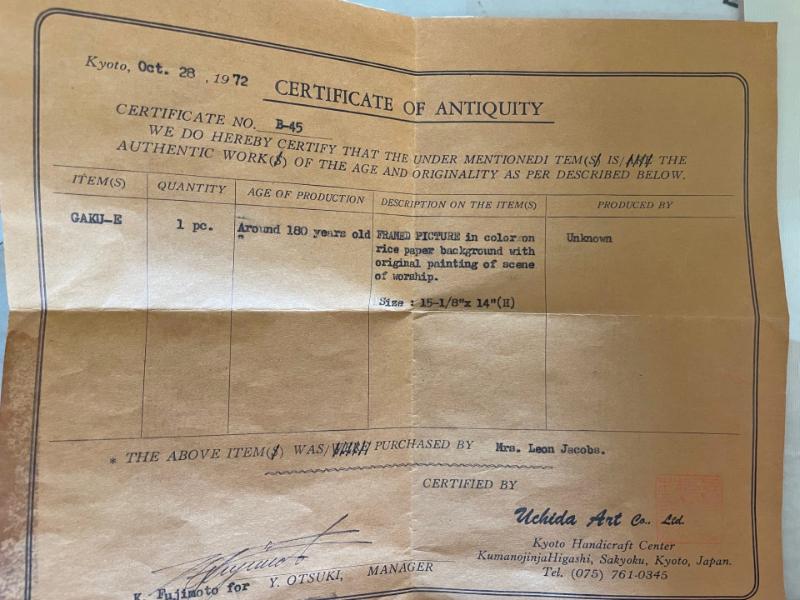 Kyoto, Oct. 28, 1972
CERTIFICATE OF ANTIQUITY
CERTIFICATE NO. B-45
WE DO HEREBY CERTIFY THAT THE UNDER MENTIONEDI TEM(S) IS/ARE THE
AUTHENTIC WORK(S) OF THE AGE AND ORIGINALITY AS PER DESCRIBED BELOW.
ITEM(S) QUANTITY AGE OF PRODUCTION DESCRIPTION ON THE ITEM(S) PRODUCED BY
GAKU-E 1 pc. Around 180 years old FRAMED PICTURE in color on Unknown
rice paper background with
original painting of scene
of worship.
Size : 15-1/8"x 14"(H)
* THE ABOVE ITEM(S) WAS/WERE PURCHASED BY Mrs. Leon Jacobs.
CERTIFIED BY
Uchida Art Co., Ltd.
Kyoto Handicraft Center
KumanojinjaHigashi, Sakyoku, Kyoto, Japan.
Tel. (075) 761-0345
K. Fujimoto for Y. OTSUKI, MANAGER